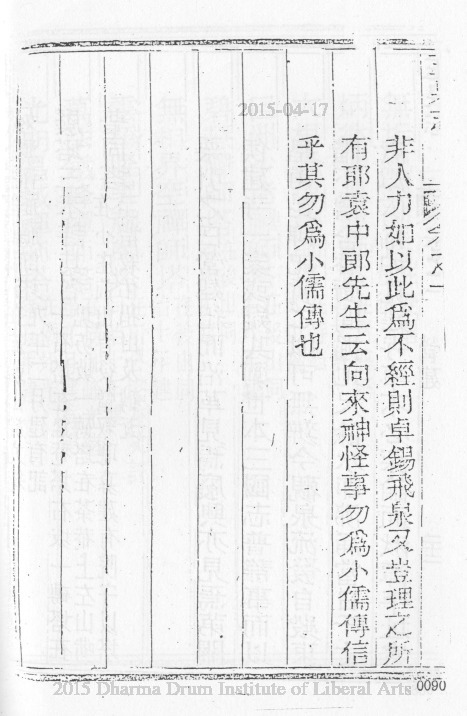 非人力如以此爲不經則卓錫飛泉又豈理之所
有耶袁中郎先生云向來神怪事勿爲小儒傳信
乎其勿爲小儒傳也
2015-04-17
2015 Dharma Drum Institute of Liberal Arts
0090